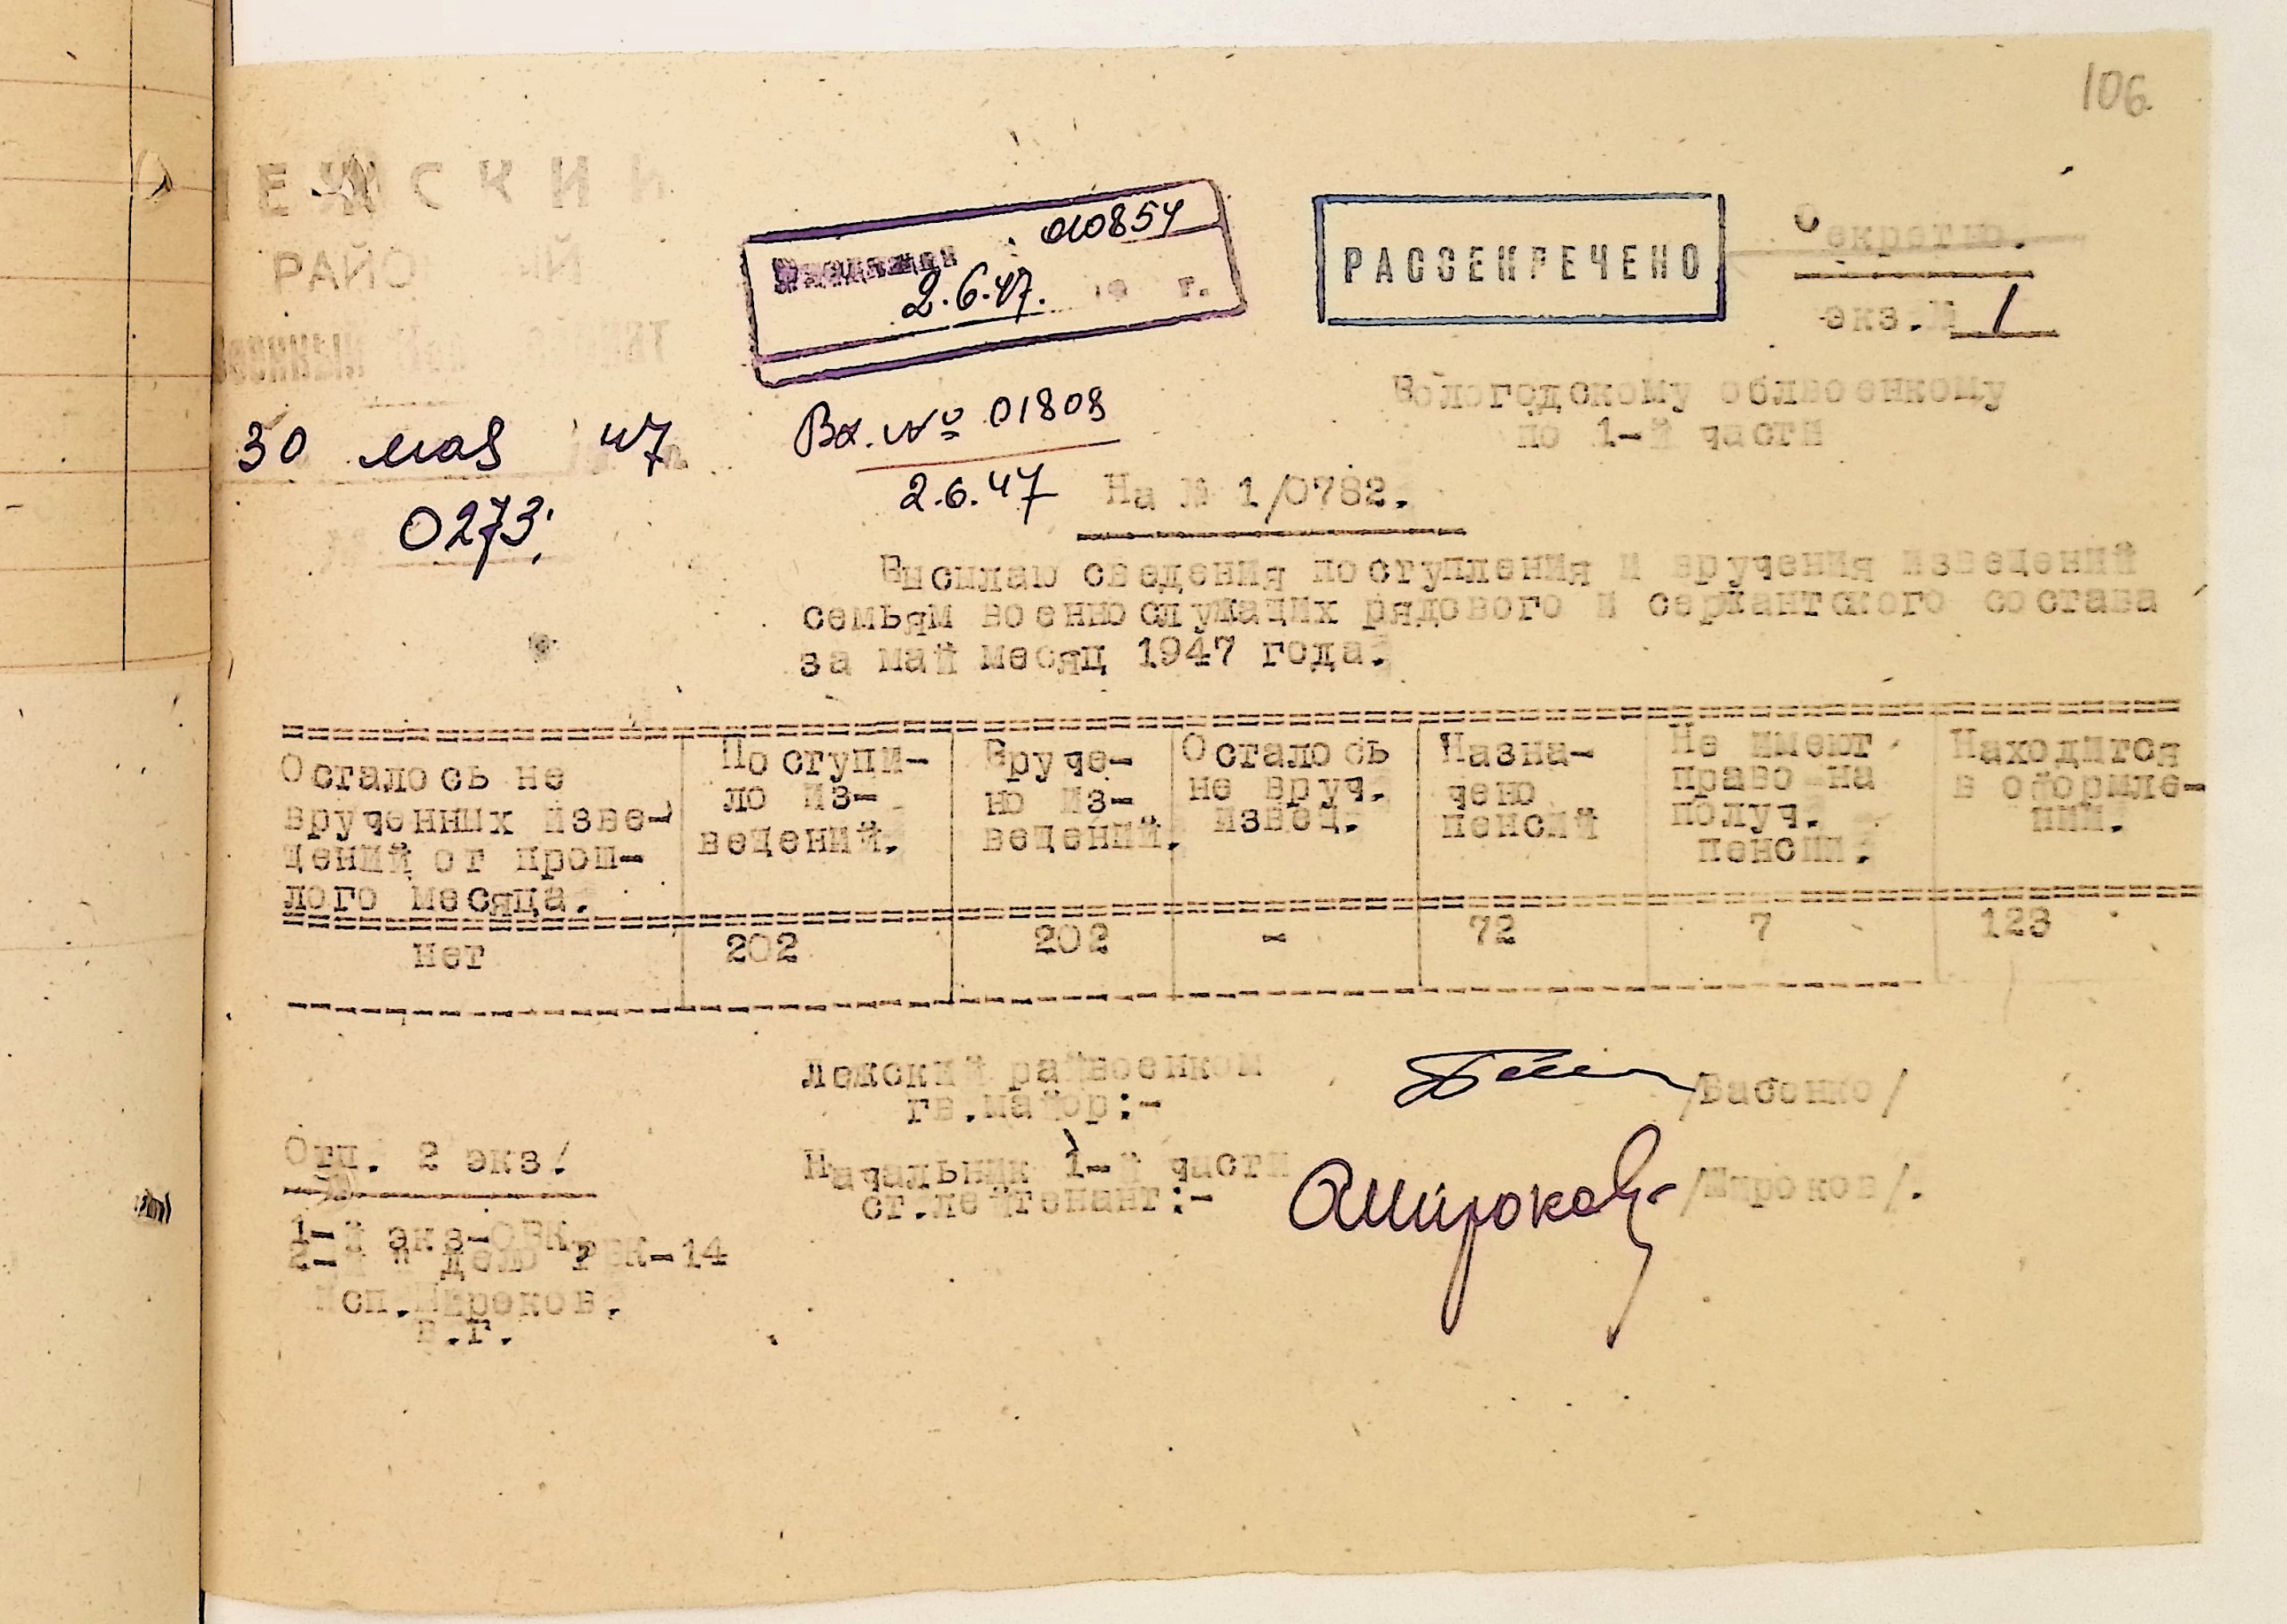 106
ЛЕЖСКИЙ
РАЙОННЫЙ
30 мая 47
0273.
010854
2.6.47. г.
Вх. № 01808
2.6.47
РАССЕКРЕЧЕНО
Секретно.
экз.№ 1
Вологодскому облвоенкому
по 1-й части
На № 1/0782.
Высылаю сведения поступления и вручения извещений
семьям военнослужащих рядового и сержантского состава
за май месяц 1947 года.
Осталось не
врученных изве-
щений от прош-
лого месяца.
Поступи-
ло из-
вещений.
Вруче-
но из-
вещений.
Осталось
не вруч.
извещ.
Назна-
чено
пенсий
Не имеют
право на
получ.
пенсии.
Находится
в оформле-
нии.
нет 202 202 - 72 7 123
Лежский райвоенком
гв.майор:- /Басенко/
Начальник 1-й части
ст.лейтенант:- Аширокова /Широков/.
Отп. 2 экз.
1-й экз-ОВК
2-й " делу РВК-14
Исп.Широков.
в.г.